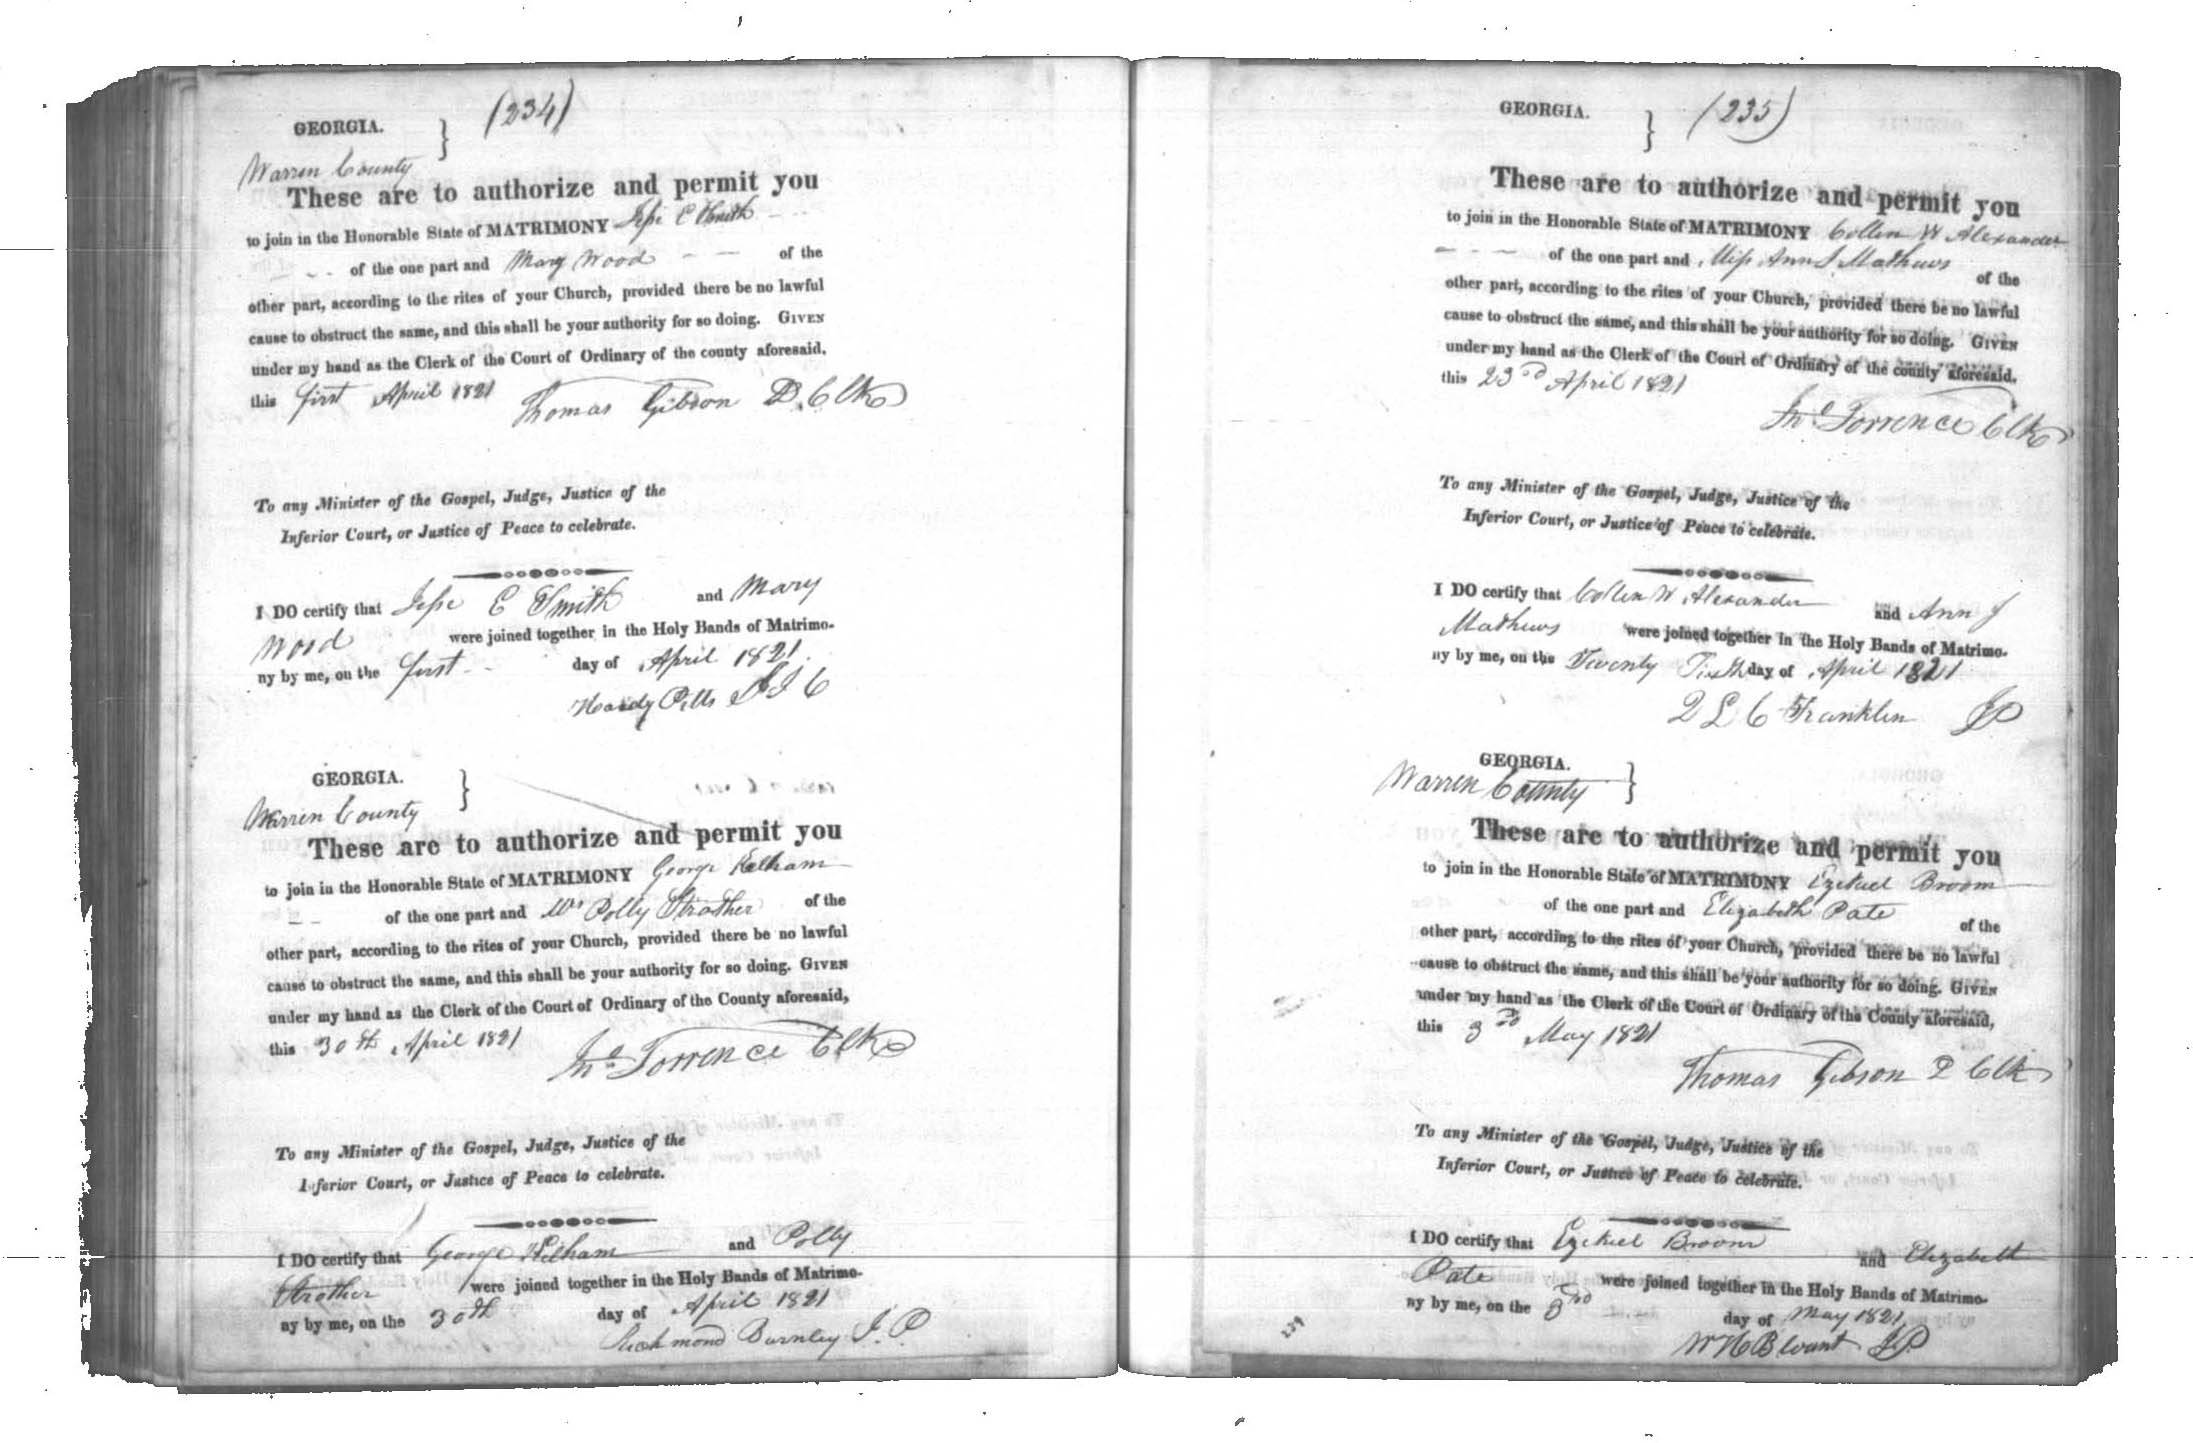 (234)
GEORGIA. }
Warren County
These are to authorize and permit you
to join in the Honorable State of MATRIMONY Jesse E Smith
of the one part and Mary Wood of the
other part, according to the rites of your Church, provided there be no lawful
cause to obstruct the same, and this shall be your authority for so doing. GIVEN
under my hand as the Clerk of the Court of Ordinary of the county aforesaid.
this first April 1821 Thomas Gibson D. Clk
To any Minister of the Gospel, Judge, Justice of the
Inferior Court, or Justice of Peace to celebrate.
I DO certify that Jesse E Smith and Mary
Wood were joined together in the Holy Bands of Matrimo-
ny by me, on the first day of April 1821.
Hardy Pitts J I C
GEORGIA. }
Warren County
These are to authorize and permit you
to join in the Honorable State of MATRIMONY George Kelham
of the one part and Polly Strother of the
other part, according to the rites of your Church, provided there be no lawful
cause to obstruct the same, and this shall be your authority for so doing. GIVEN
under my hand as the Clerk of the Court of Ordinary of the County aforesaid,
this 30th April 1821 Jno Torrence Clk
To any Minister of the Gospel, Judge, Justice of the
Inferior Court, or Justice of Peace to celebrate.
I DO certify that George Kelham and Polly
Strother were joined together in the Holy Bands of Matrimo-
ny by me, on the 30th day of April 1821
Richmond Burnley J. P.
(235)
GEORGIA. }
These are to authorize and permit you
to join in the Honorable State of MATRIMONY Collen W Alexander
of the one part and Miss Ann J Mathews of the
other part, according to the rites of your Church, provided there be no lawful
cause to obstruct the same, and this shall be your authority for so doing. GIVEN
under my hand as the Clerk of the Court of Ordinary of the county aforesaid.
this 23rd April 1821
Jno Torrence Clk
To any Minister of the Gospel, Judge, Justice of the
Inferior Court, or Justice of Peace to celebrate.
I DO certify that Collen W Alexander and Ann J
Mathews were joined together in the Holy Bands of Matrimo-
ny by me, on the Twenty day of April 1821
Q L C Franklin JP
GEORGIA. }
Warren County
These are to authorize and permit you
to join in the Honorable State of MATRIMONY Ezekiel Broom
of the one part and Elizabeth Pate of the
other part, according to the rites of your Church, provided there be no lawful
cause to obstruct the same, and this shall be your authority for so doing. GIVEN
under my hand as the Clerk of the Court of Ordinary of the County aforesaid,
this 3rd May 1821
Thomas Gibson D Clk
To any Minister of the Gospel, Judge, Justice of the
Inferior Court, or Justice of Peace to celebrate.
I DO certify that Ezekiel Broom and Elizabeth
Pate were joined together in the Holy Bands of Matrimo-
ny by me, on the 3rd day of May 1821
W H Blount JP
239